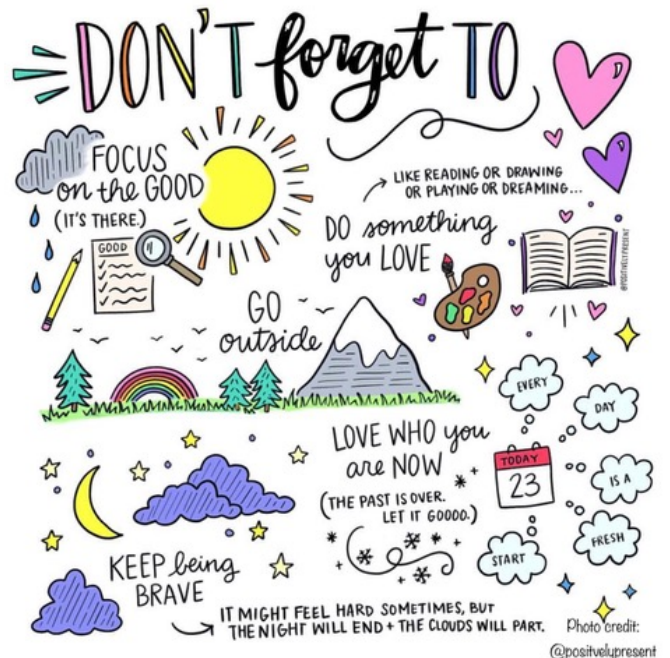 DON'T forget TO
FOCUS
on the GOOD
(IT'S THERE.)
GOOD
LIKE READING OR DRAWING
OR PLAYING OR DREAMING...
DO something
you LOVE
@POSITIVELYPRESENT
GO
outside
LOVE WHO you
are NOW
(THE PAST IS OVER.
LET IT GOOOO.)
TODAY
23
EVERY
DAY
IS A
FRESH
START
KEEP being
BRAVE
IT MIGHT FEEL HARD SOMETIMES, BUT
THE NIGHT WILL END + THE CLOUDS WILL PART.
Photo credit:
@positvelypresent